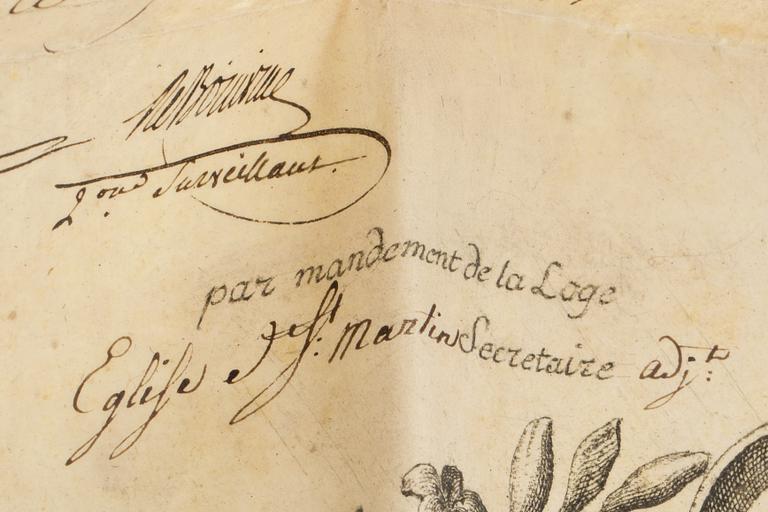 2.ond Surveillant.
par mandement de la Loge
Eglise d St. Martin Secretaire adj.t